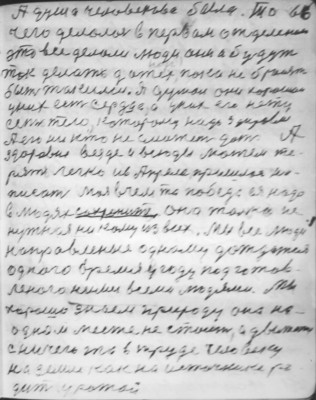 А душа человекова была. То об
чего делался в первом отделении
это все делали люди они и будут
так делать до тех пока не бросят
быть такими. Я думаю они хорошие
у них есть сердца а у них его нету
есть тело, которому надо здоровие
А его никто не может дать А
здоровие везде и всюду может те-
рять легко из Апреля пришлося на-
писать моя в чем то победа я надо
в людях сохранить она только не
нужная ни кому из всех. Мы все люди
направленные одному дождаться
одного время угоду подготов-
леного ними всеми людями. Мы
хорошо знаем природу она на
одном месте не стоит, а движется
с ничего это в труде человеку
на земле как на источнике ро-
дит урожай